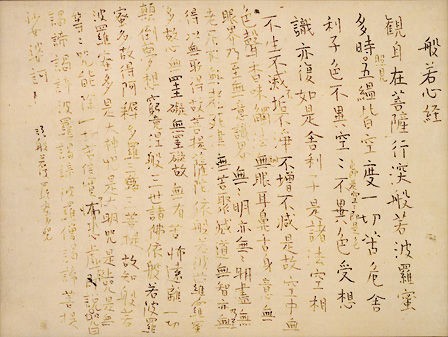 般若心経
観自在菩薩行深般若波羅蜜
多時照見五蘊皆空度一切苦危舎
利子色不異空空不異色受想
色即是空空即是色
識亦復如是舎利子是諸法空相
不生不滅不垢不浄不増不滅是故空中無
色聲香味觸法無眼耳鼻舌身意無
眼界乃至無意識界無無明亦無無明盡無
老死亦無老死盡無苦聚滅道無智亦無
得以無所得故菩提薩陀依般若波羅蜜
多故心無罣礙無罣礙故無有怖遠離一切
顛倒夢想究竟涅般三世諸佛依般若波羅
蜜多故得阿耨羅三藐三菩提故知般若
波羅蜜多是大神呪是大明呪是無
等等呪能除一切苦真実説呪曰
羯諦羯諦波羅羯諦波羅僧羯諦菩提
沙婆訶